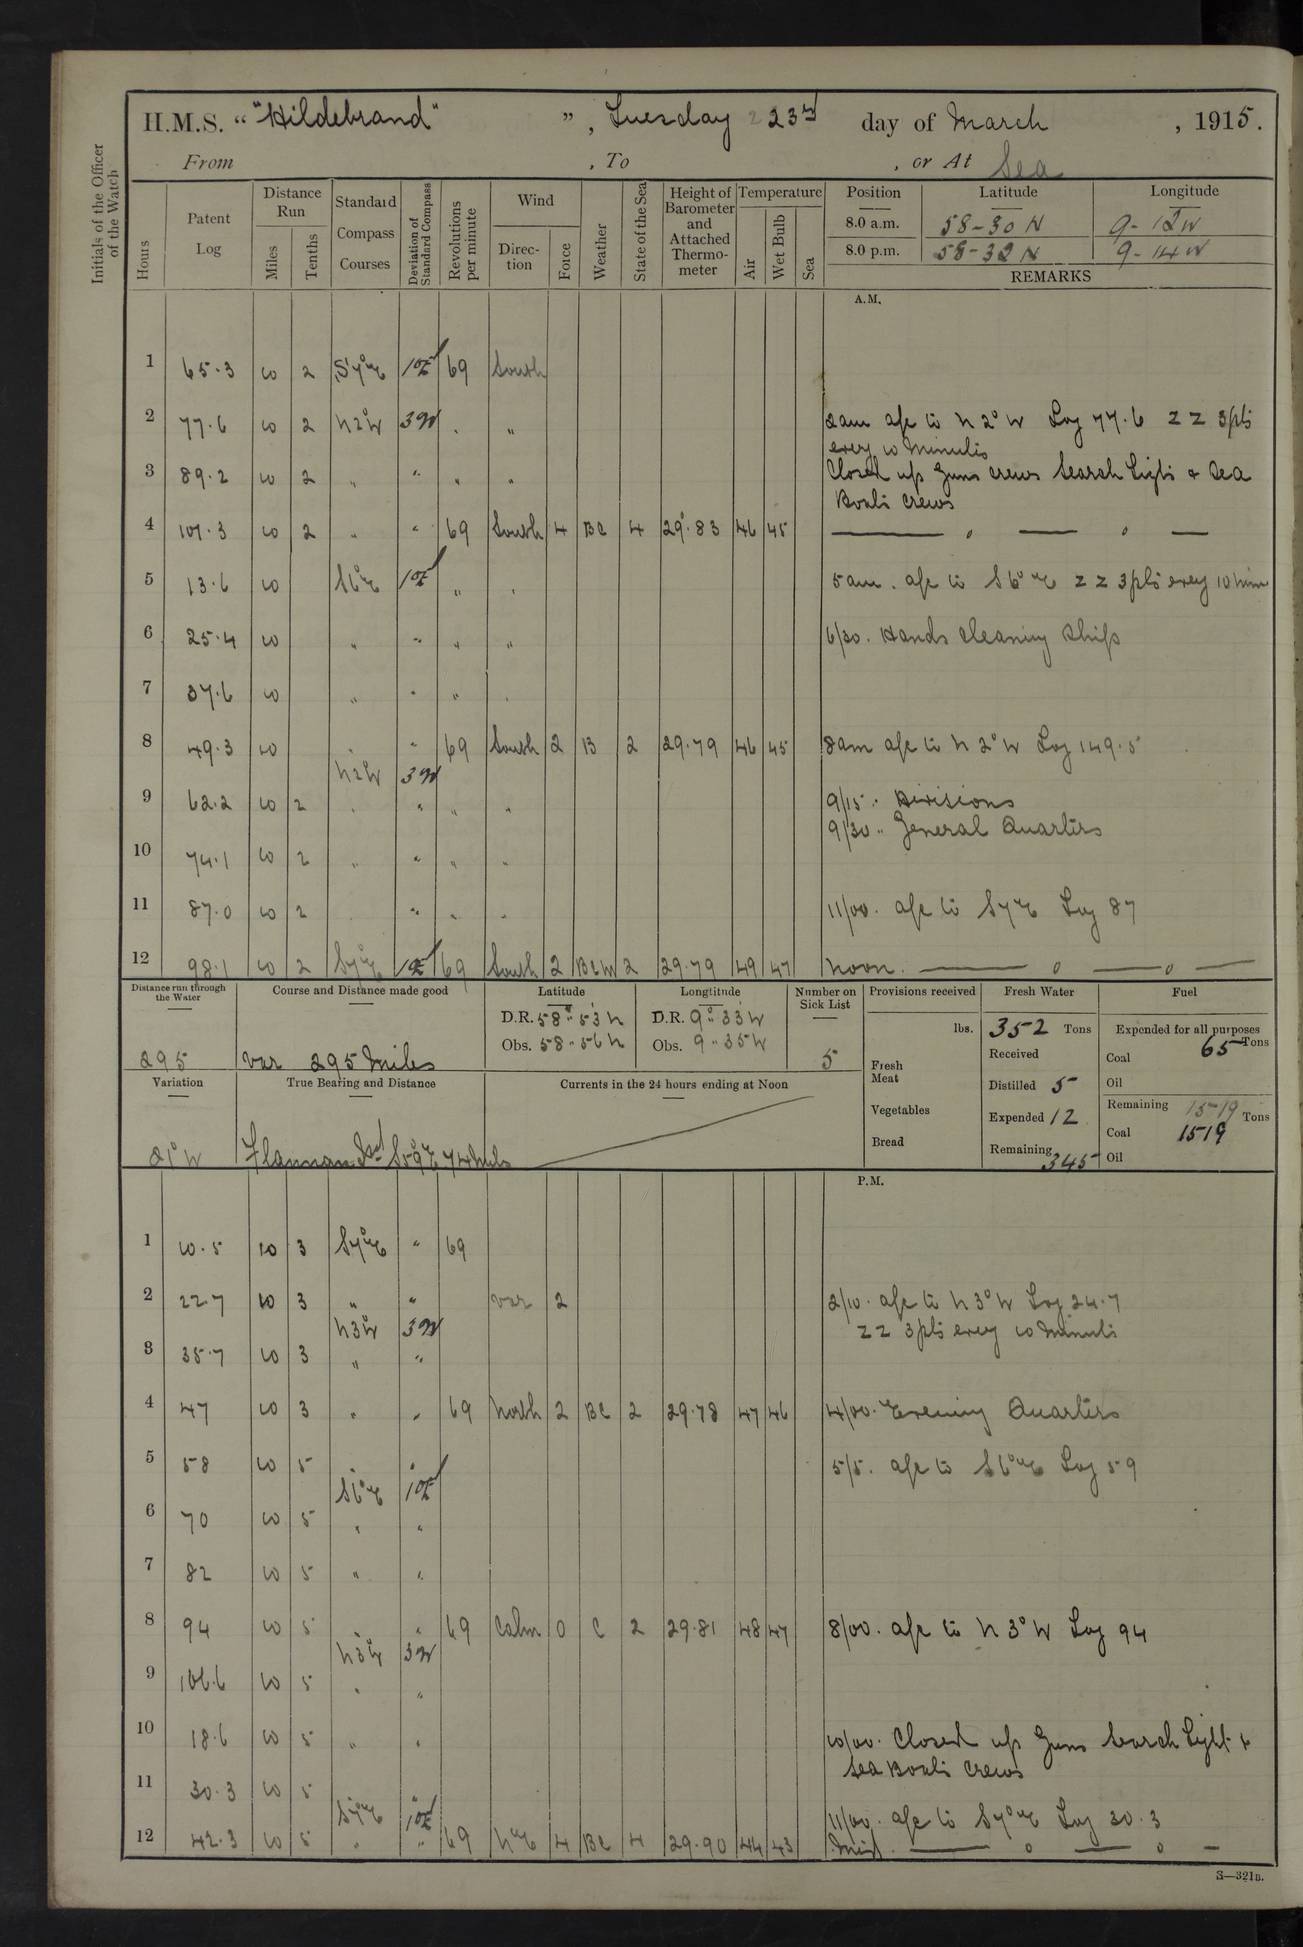 H.M.S. “ "Hildebrand" ”, Tuesday 23rd day of March, 1915.
From , To , or At Sea
Initials of the Officer of the Watch
Hours
Patent Log
Distance Run
Miles
Tenths
Standard Compass Courses
Deviation of Standard Compass
Revolutions per minute
Wind
Direction
Force
Weather
State of the Sea
Height of Barometer and Attached Thermometer
Temperature
Air
Wet Bulb
Sea
Position Latitude Longitude
8.0 a.m. 58-30 N 9-12 W
8.0 p.m. 58-32 N 9-14 W
REMARKS
A.M.
1 65.3 10 2 S7°E 1°E 69 South
2 77.6 10 2 N2°W 3W . " 2am a/c to N 2° W Log 77.6 ZZ 3pts
every 10 Minutes
3 89.2 10 2 " " " " Closed up Guns crews Search Lights & Sea
Boats Crews
4 101.3 10 2 " " 69 South 4 BC 4 29.83 46 45
5 13.6 10 S6°E 1°E " " 5am. a/c to S 6° E ZZ 3pts every 10 min
6 25.4 10 " " " " 6/30. Hands cleaning Ship
7 37.6 10 " " " "
8 49.3 10 " " 69 South 2 B 2 29.79 46 45 8am a/c to N 2° W Log 149.5
N2°W 3W
9 62.2 10 2 " " " " 9/15. Divisions
9/30 " General Quarters
10 74.1 10 2 " " " "
11 87.0 10 2 " " " 11/00. a/c to S7E Log 87
12 98.1 10 2 S7°E 1°E 69 South 2 BCM 2 29.79 49 47 Noon.
Distance run through the Water
295
Course and Distance made good
Var 295 Miles
Latitude
D.R. 58°-53' N
Obs. 58-56 N
Longtitude
D.R. 9°-33' W
Obs. 9-35 W
Number on Sick List
5
Provisions received
lbs.
Fresh Meat
Vegetables
Bread
Fresh Water
352 Tons
Received
Distilled 5
Expended 12
Remaining 345
Fuel
Expended for all purposes
Tons
Coal 65
Oil
Remaining 1519 Tons
Coal 1519
Oil
Variation
21°W
True Bearing and Distance
Flannan Isd S59°E 74 Mils
Currents in the 24 hours ending at Noon
P.M.
1 10.5 10 3 S7°E " 69
2 22.7 10 3 " " Var 2 2/10. a/c to N 3° W Log 24.7
N3°W 3W ZZ 3pts every 10 Minuts
3 35.7 10 3 " "
4 47 10 3 " " 69 North 2 BC 2 29.78 47 46 4/00. Evening Quarters
5 58 10 5 " " 5/5. a/c to S6°E Log 59
S6°E 1°E
6 70 10 5 " "
7 82 10 5 " "
8 94 10 5 " " 69 Calm 0 C 2 29.81 48 47 8/00. a/c to N 3° W Log 94
N3°W 3W
9 106.6 10 5 " "
10 18.6 10 5 " " 10/00. Closed up Guns Search Light &
Sea Boats Crews
11 30.3 10 5 "
S7°E 1°E 11/00. a/c to S7°E Log 30.3
12 42.3 10 5 " " 69 N°E 4 BC 4 29.90 44 43 Mid.
S—321B.